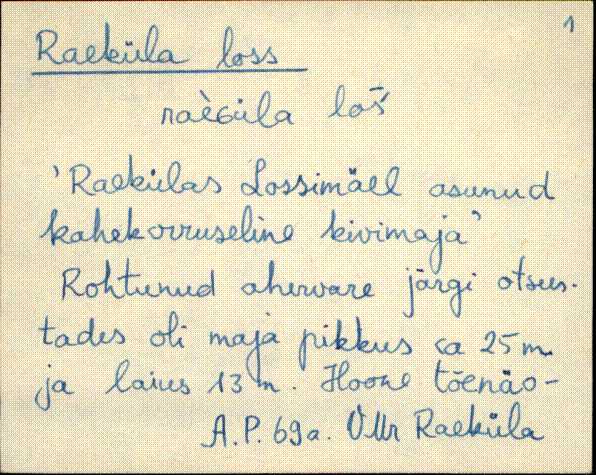 1
Raeküla loss
raèGüla loš́
'Raekülas Lossimäel asunud
kahekorruseline kivimaja'
Rohtunud aherware järgi otsus-
tades oli maja pikkus ca 25 m
ja laius 13 m. Hoone tõenäo-
A.P. 69 a. VMr Raeküla